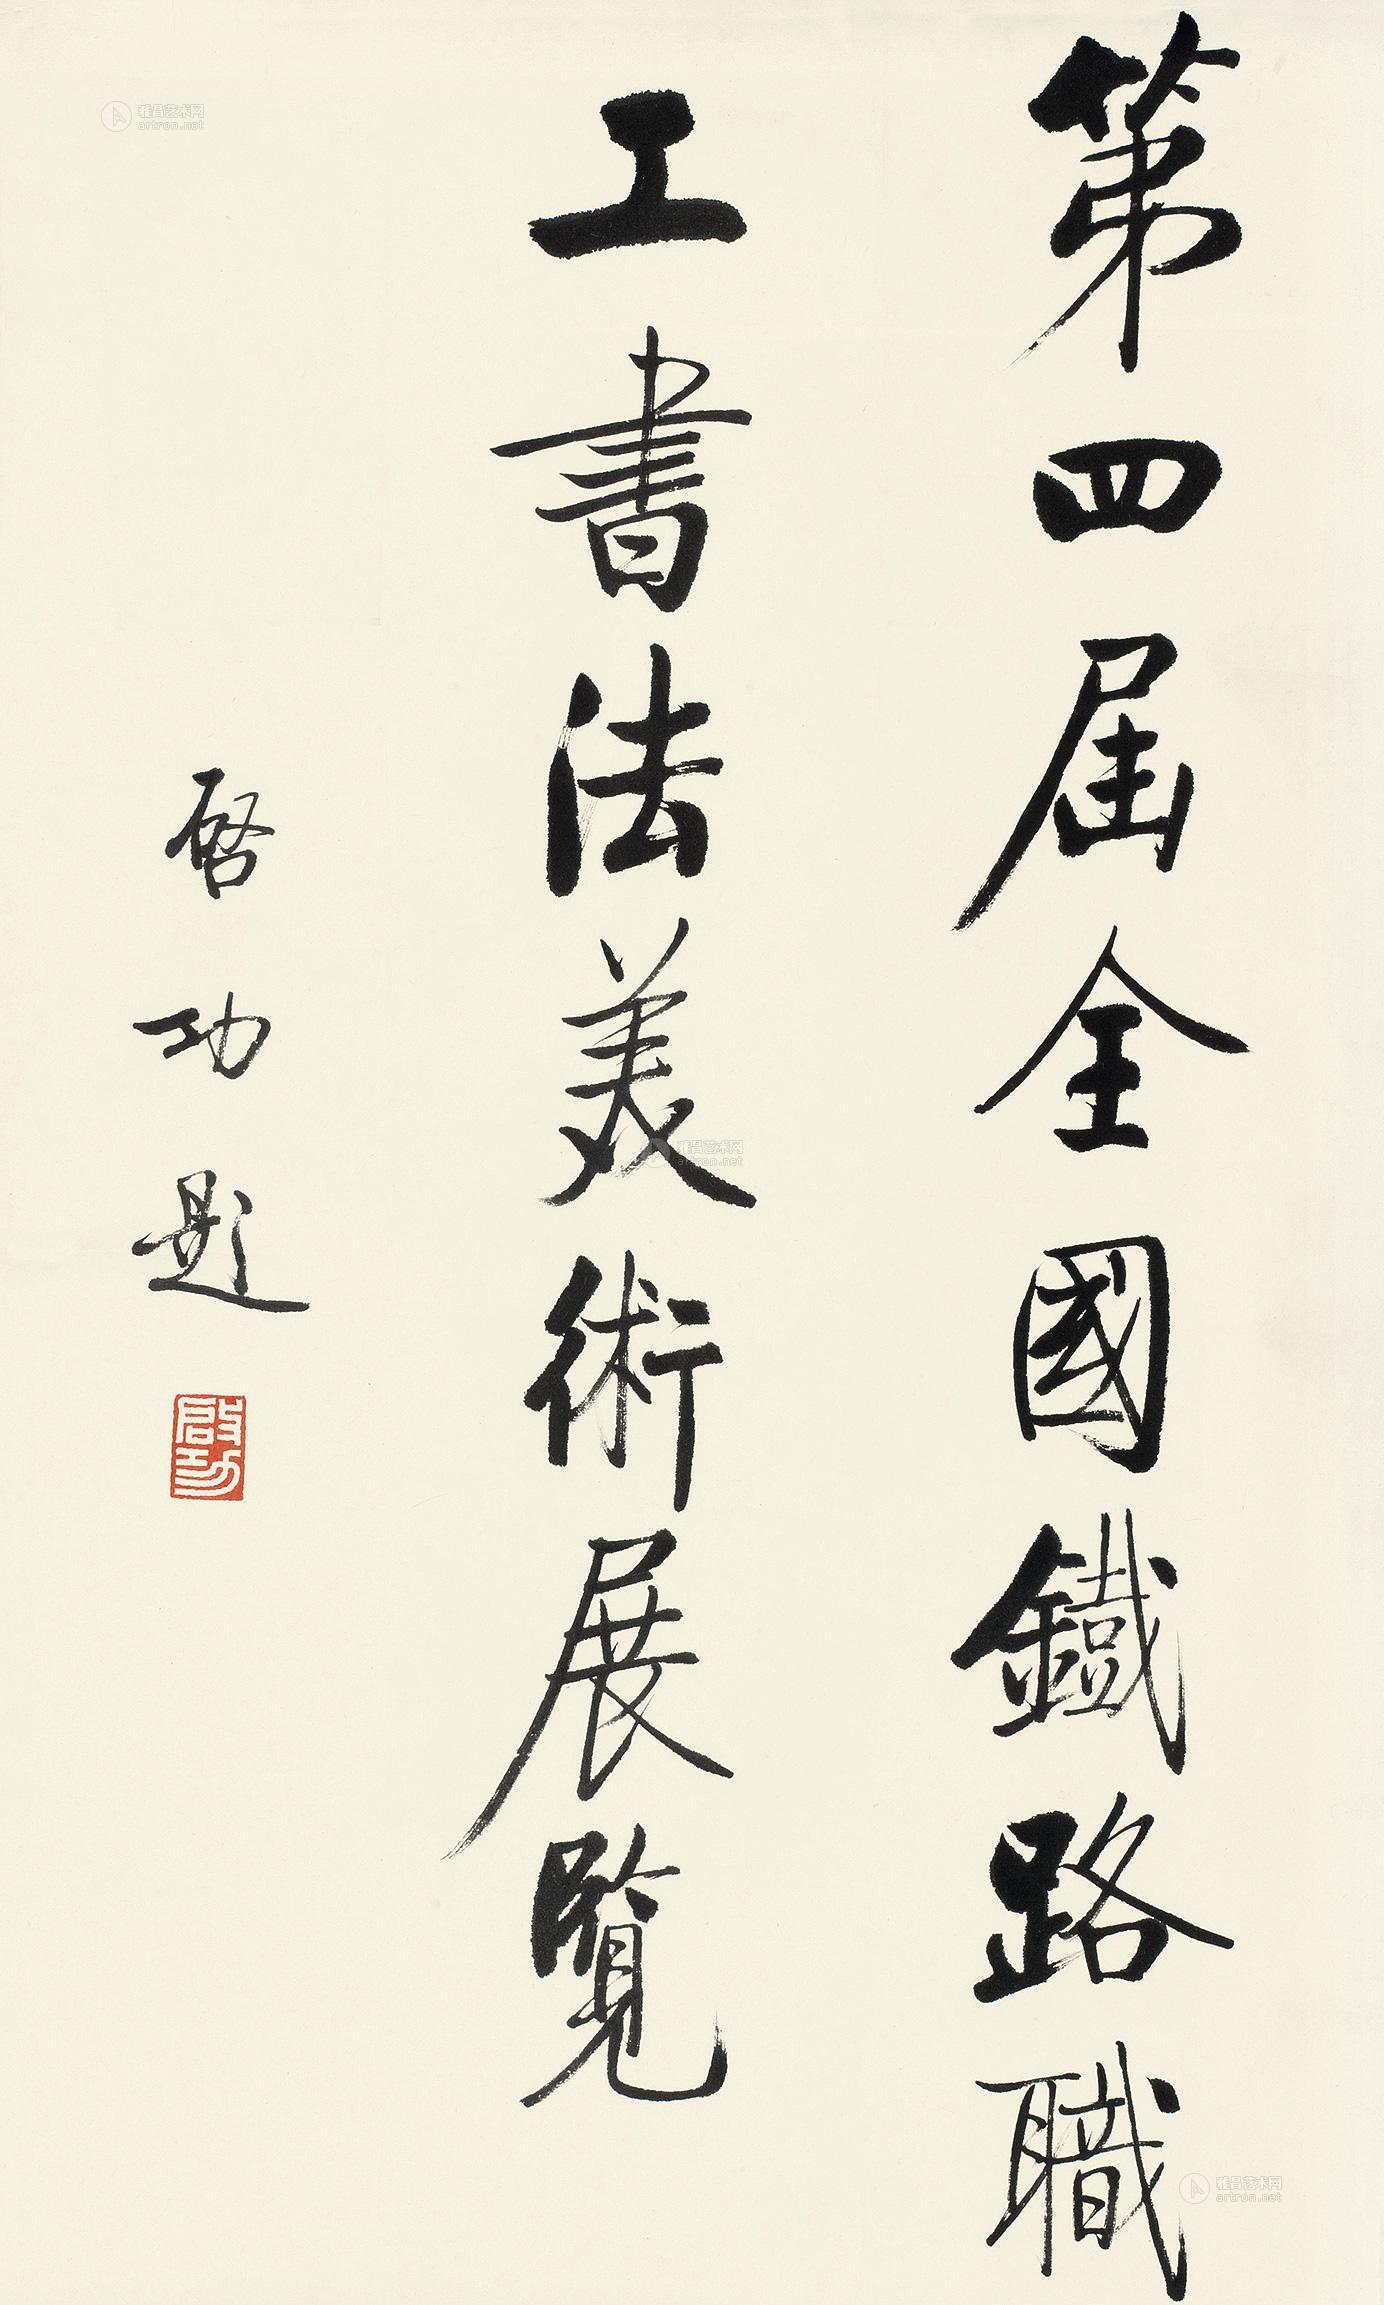 第四届全國鐵路職
工書法美術展覽
启功题
啟功
雅昌艺术网
artron.net
雅昌艺术网
artron.net
雅昌艺术网
artron.net